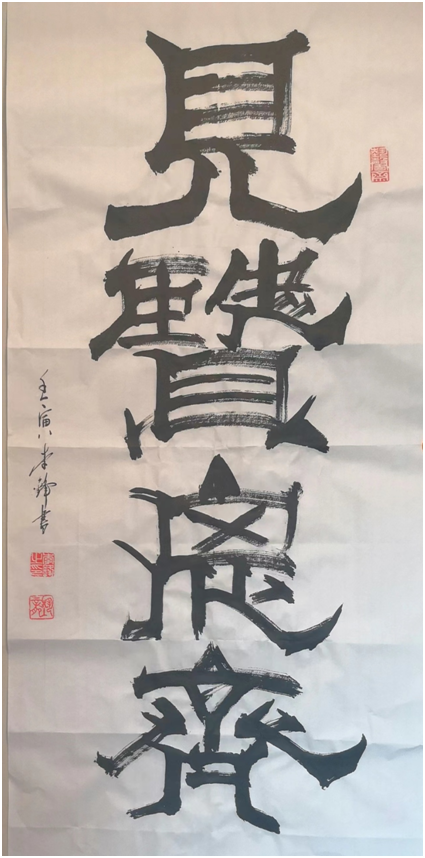 見賢思齊
壬寅 書